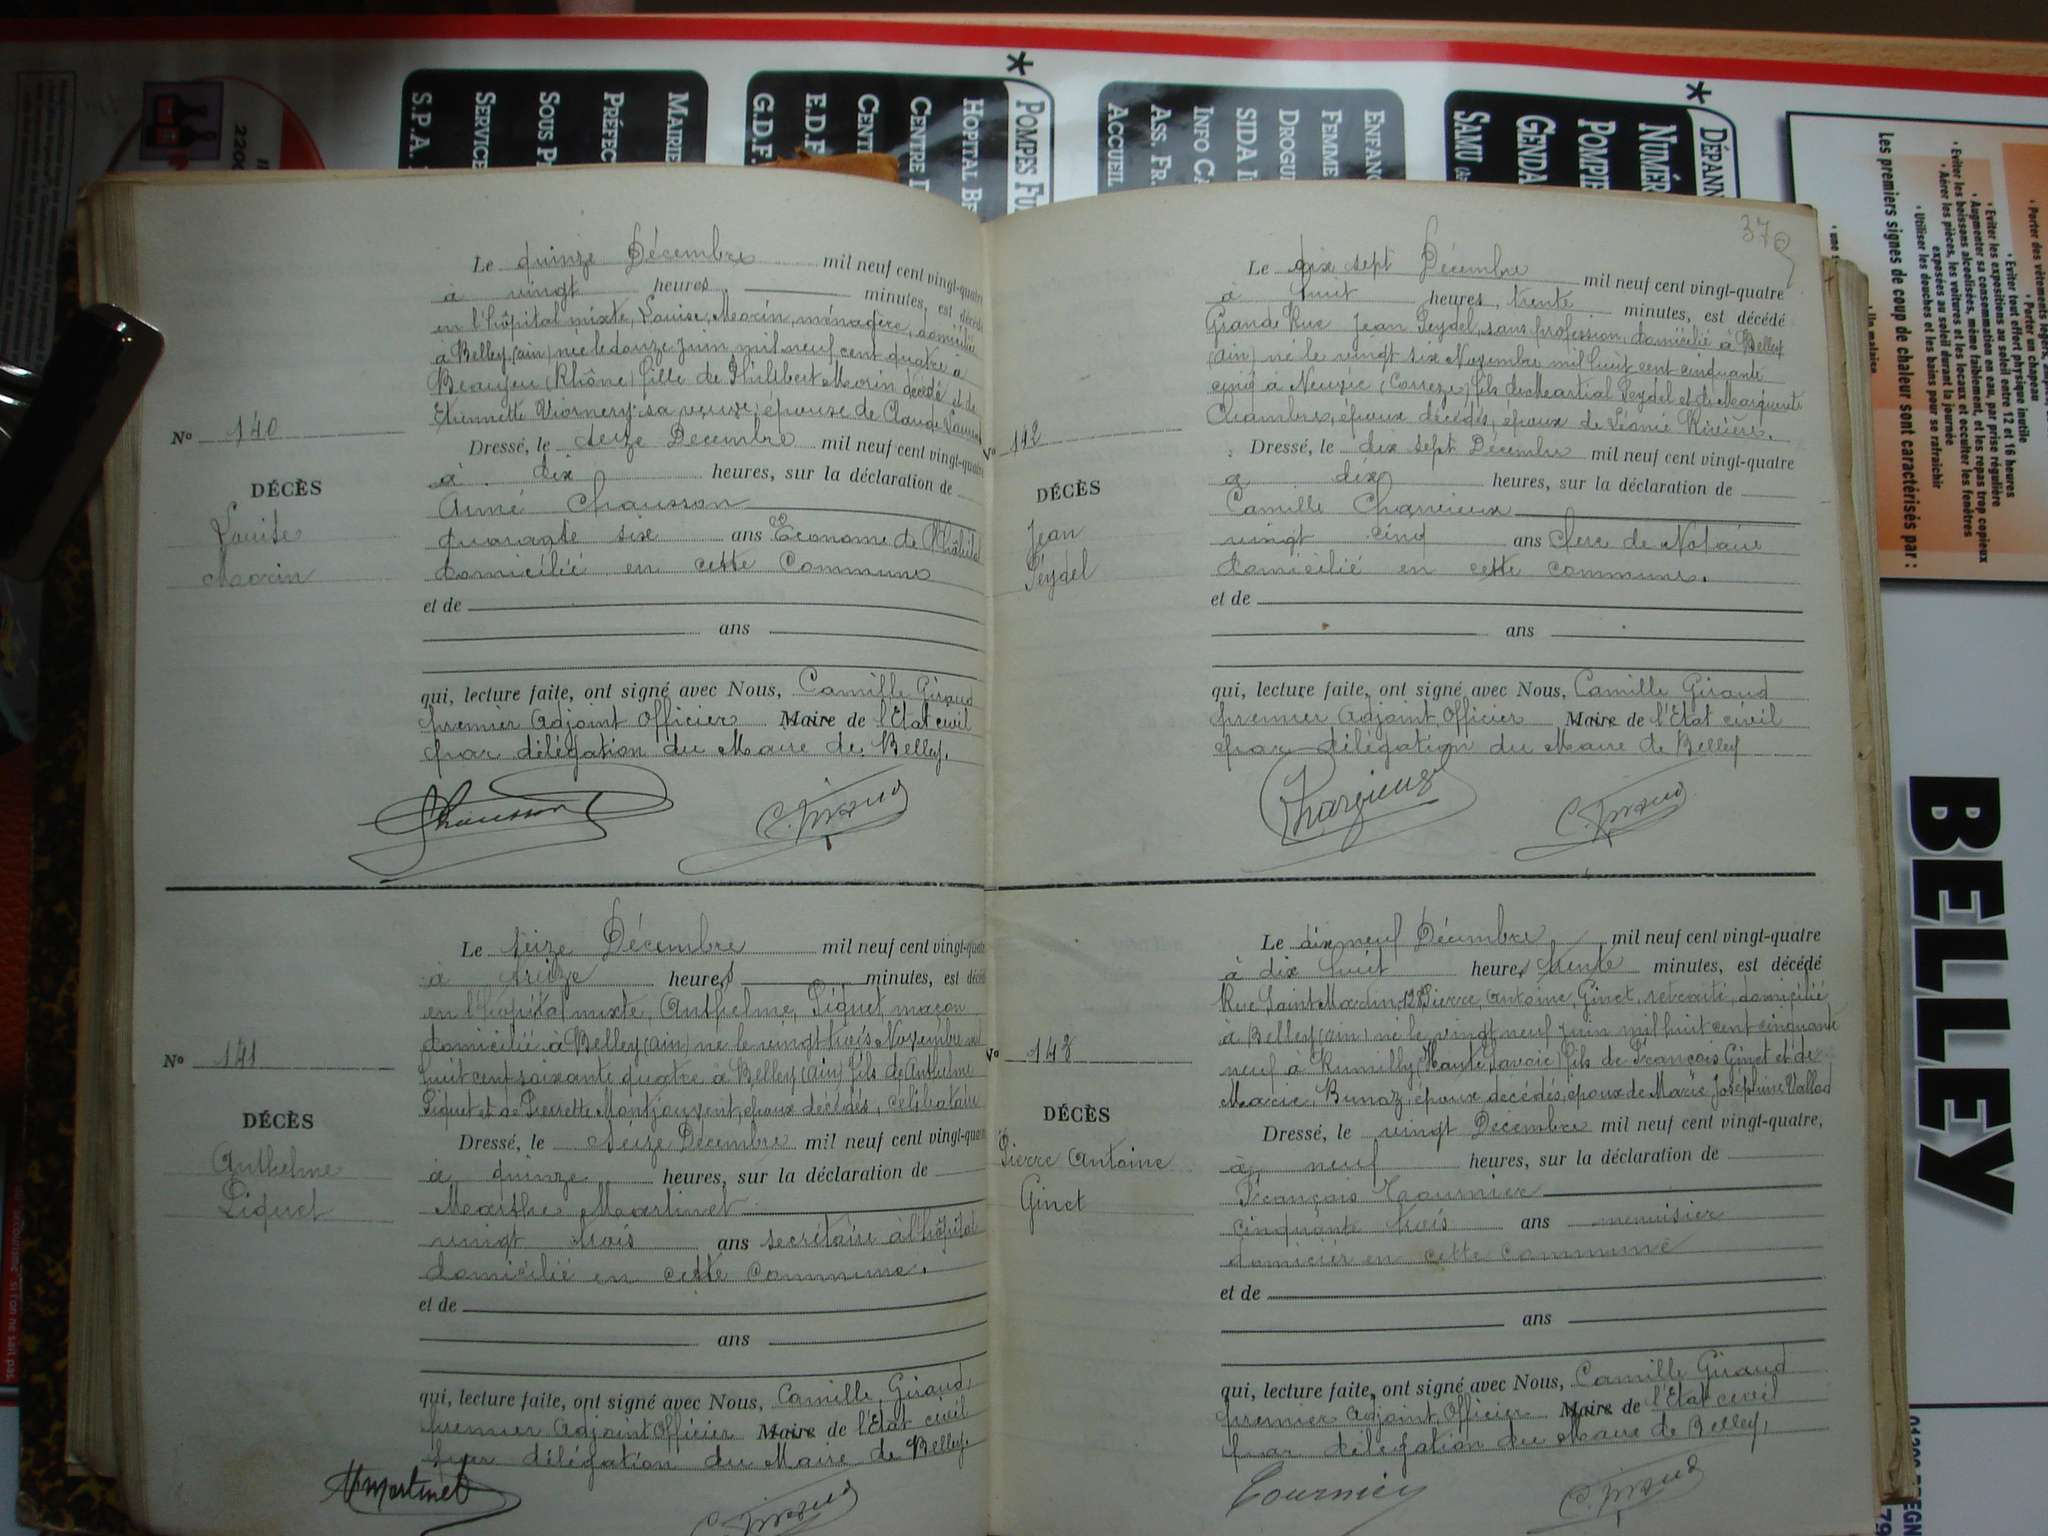 S.P.A.
SERVICE
SOUS P
PRÉFEC
MAIRIE
G.D.F.
E.D.F
CENTI
CENTRE
HOPITAL BE
POMPES FU
ACCUEIL
ASS. FR.
INFO CA
SIDA I
DROGU
FEMME
ENFANC
SAMU
GENDA
POMPIE
NUMÉR
DÉPANN
Les premiers signes de coup de chaleur sont caractérisés par :
• Utiliser les douches et les bains pour se rafraîchir
exposées au soleil durant la journée
• Aérer les pièces, les voitures et les locaux et occulter les fenêtres
• Eviter les boissons alcoolisées, même faiblement, et les repas trop copieux
• Augmenter sa consommation en eau, par prise régulière
• Eviter les expositions au soleil entre 12 et 16 heures
• Eviter tout effort physique inutile
• Porter un chapeau
• Porter des vêtements légers,
BELLEY
Le quinze Décembre mil neuf cent vingt-quatre
à vingt heures minutes, est décédé
en l'hôpital mixte, Louise, Morin, ménagère, domiciliée
à Belley (ain) née le douze juin mil neuf cent quatre à
Beaujeu (Rhône) fille de Philibert Morin décédé et de
Etiennette Viornery sa veuve, épouse de Claude
N° 140
Dressé, le seize Décembre mil neuf cent vingt-quatre
à dix heures, sur la déclaration de
DÉCÈS
Aimé Chausson
Louise
quarante six ans Econome de l'hôpital
Morin
domicilié en cette commune
et de
ans
qui, lecture faite, ont signé avec Nous, Camille Giraud
premier Adjoint Officier Maire de l'Etat civil
par délégation du Maire de Belley.
Chausson
C. Giraud
Le seize Décembre mil neuf cent vingt-quatre
à treize heures minutes, est décédé
en l'hôpital mixte, Anthelme, Piquet, maçon
domicilié à Belley (ain) né le vingt trois Novembre mil
huit cent soixante quatre à Belley (ain) fils de Anthelme
Piquet et de Pierrette Montjouvent, époux décédés, célibataire
N° 141
Dressé, le seize Décembre mil neuf cent vingt-quatre
DÉCÈS
à quinze heures, sur la déclaration de
Anthelme
Piquet
Marthe Martinet
vingt trois ans secrétaire à l'hôpital
domicilié en cette commune.
et de
ans
qui, lecture faite, ont signé avec Nous, Camille Giraud,
premier Adjoint Officier Maire de l'Etat civil
par délégation du Maire de Belley.
M martinet
C. Giraud
37
Le dix sept Décembre mil neuf cent vingt-quatre
à huit heures trente minutes, est décédé
Grande Rue Jean Peydel, sans profession, domicilié à Belley
(ain) né le vingt six Novembre mil huit cent cinquante
cinq à Neuvic (Corrèze) fils de Martial Peydel et de Marguerite
Chambre, époux décédés, époux de Léonie Rivière.
N° 142
Dressé, le dix sept Décembre mil neuf cent vingt-quatre
à dix heures, sur la déclaration de
DÉCÈS
Camille
Jean
vingt cinq ans Clerc de Notaire
Peydel
domicilié en cette commune.
et de
ans
qui, lecture faite, ont signé avec Nous, Camille Giraud
premier Adjoint Officier Maire de l'Etat civil
par délégation du Maire de Belley
C. Giraud
Le dix neuf Décembre mil neuf cent vingt-quatre
à dix huit heures trente minutes, est décédé
Rue Saint Martin, 12 Pierre, Antoine, Ginet, retraité, domicilié
à Belley (ain) né le vingt neuf juin mil huit cent cinquante
neuf à Rumilly (Haute Savoie) fils de François Ginet et de
Marie, Bunaz, époux décédés, époux de Marie Joséphine Vallod
N° 143
DÉCÈS
Dressé, le vingt Décembre mil neuf cent vingt-quatre,
à neuf heures, sur la déclaration de
Pierre Antoine
Ginet
François Tournier
cinquante trois ans menuisier
domicilié en cette commune
et de
ans
qui, lecture faite, ont signé avec Nous, Camille Giraud
premier Adjoint Officier Maire de l'Etat civil
par délégation du Maire de Belley,
Tournier
C. Giraud